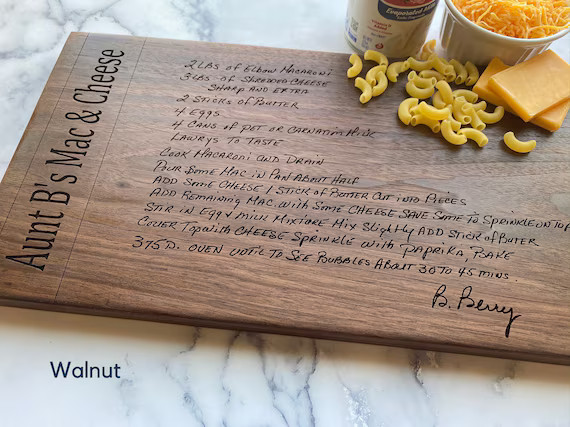 Evaporated Milk
Aunt B's Mac & Cheese
2 LBS of Elbow Macaroni
3 LBS of Shredded Cheese
Sharp and Extra
2 Sticks of Butter
4 Eggs
4 Cans of Pet or Carnation Milk
Lawrys to Taste
Cook Macaroni and Drain
Pour Some Mac in Pan About Half
Add Some Cheese 1 Stick of Butter Cut into Pieces
Add Remaining Mac with Some Cheese Save Some to Sprinkle on Top
Stir in Egg & Milk Mixtore Mix Slightly Add Stick of Butter
Cover Top with Cheese Sprinkle with Paprika, Bake
375 D. Oven Until to See Boubbles About 30 to 45 mins.
B. Berry
Walnut